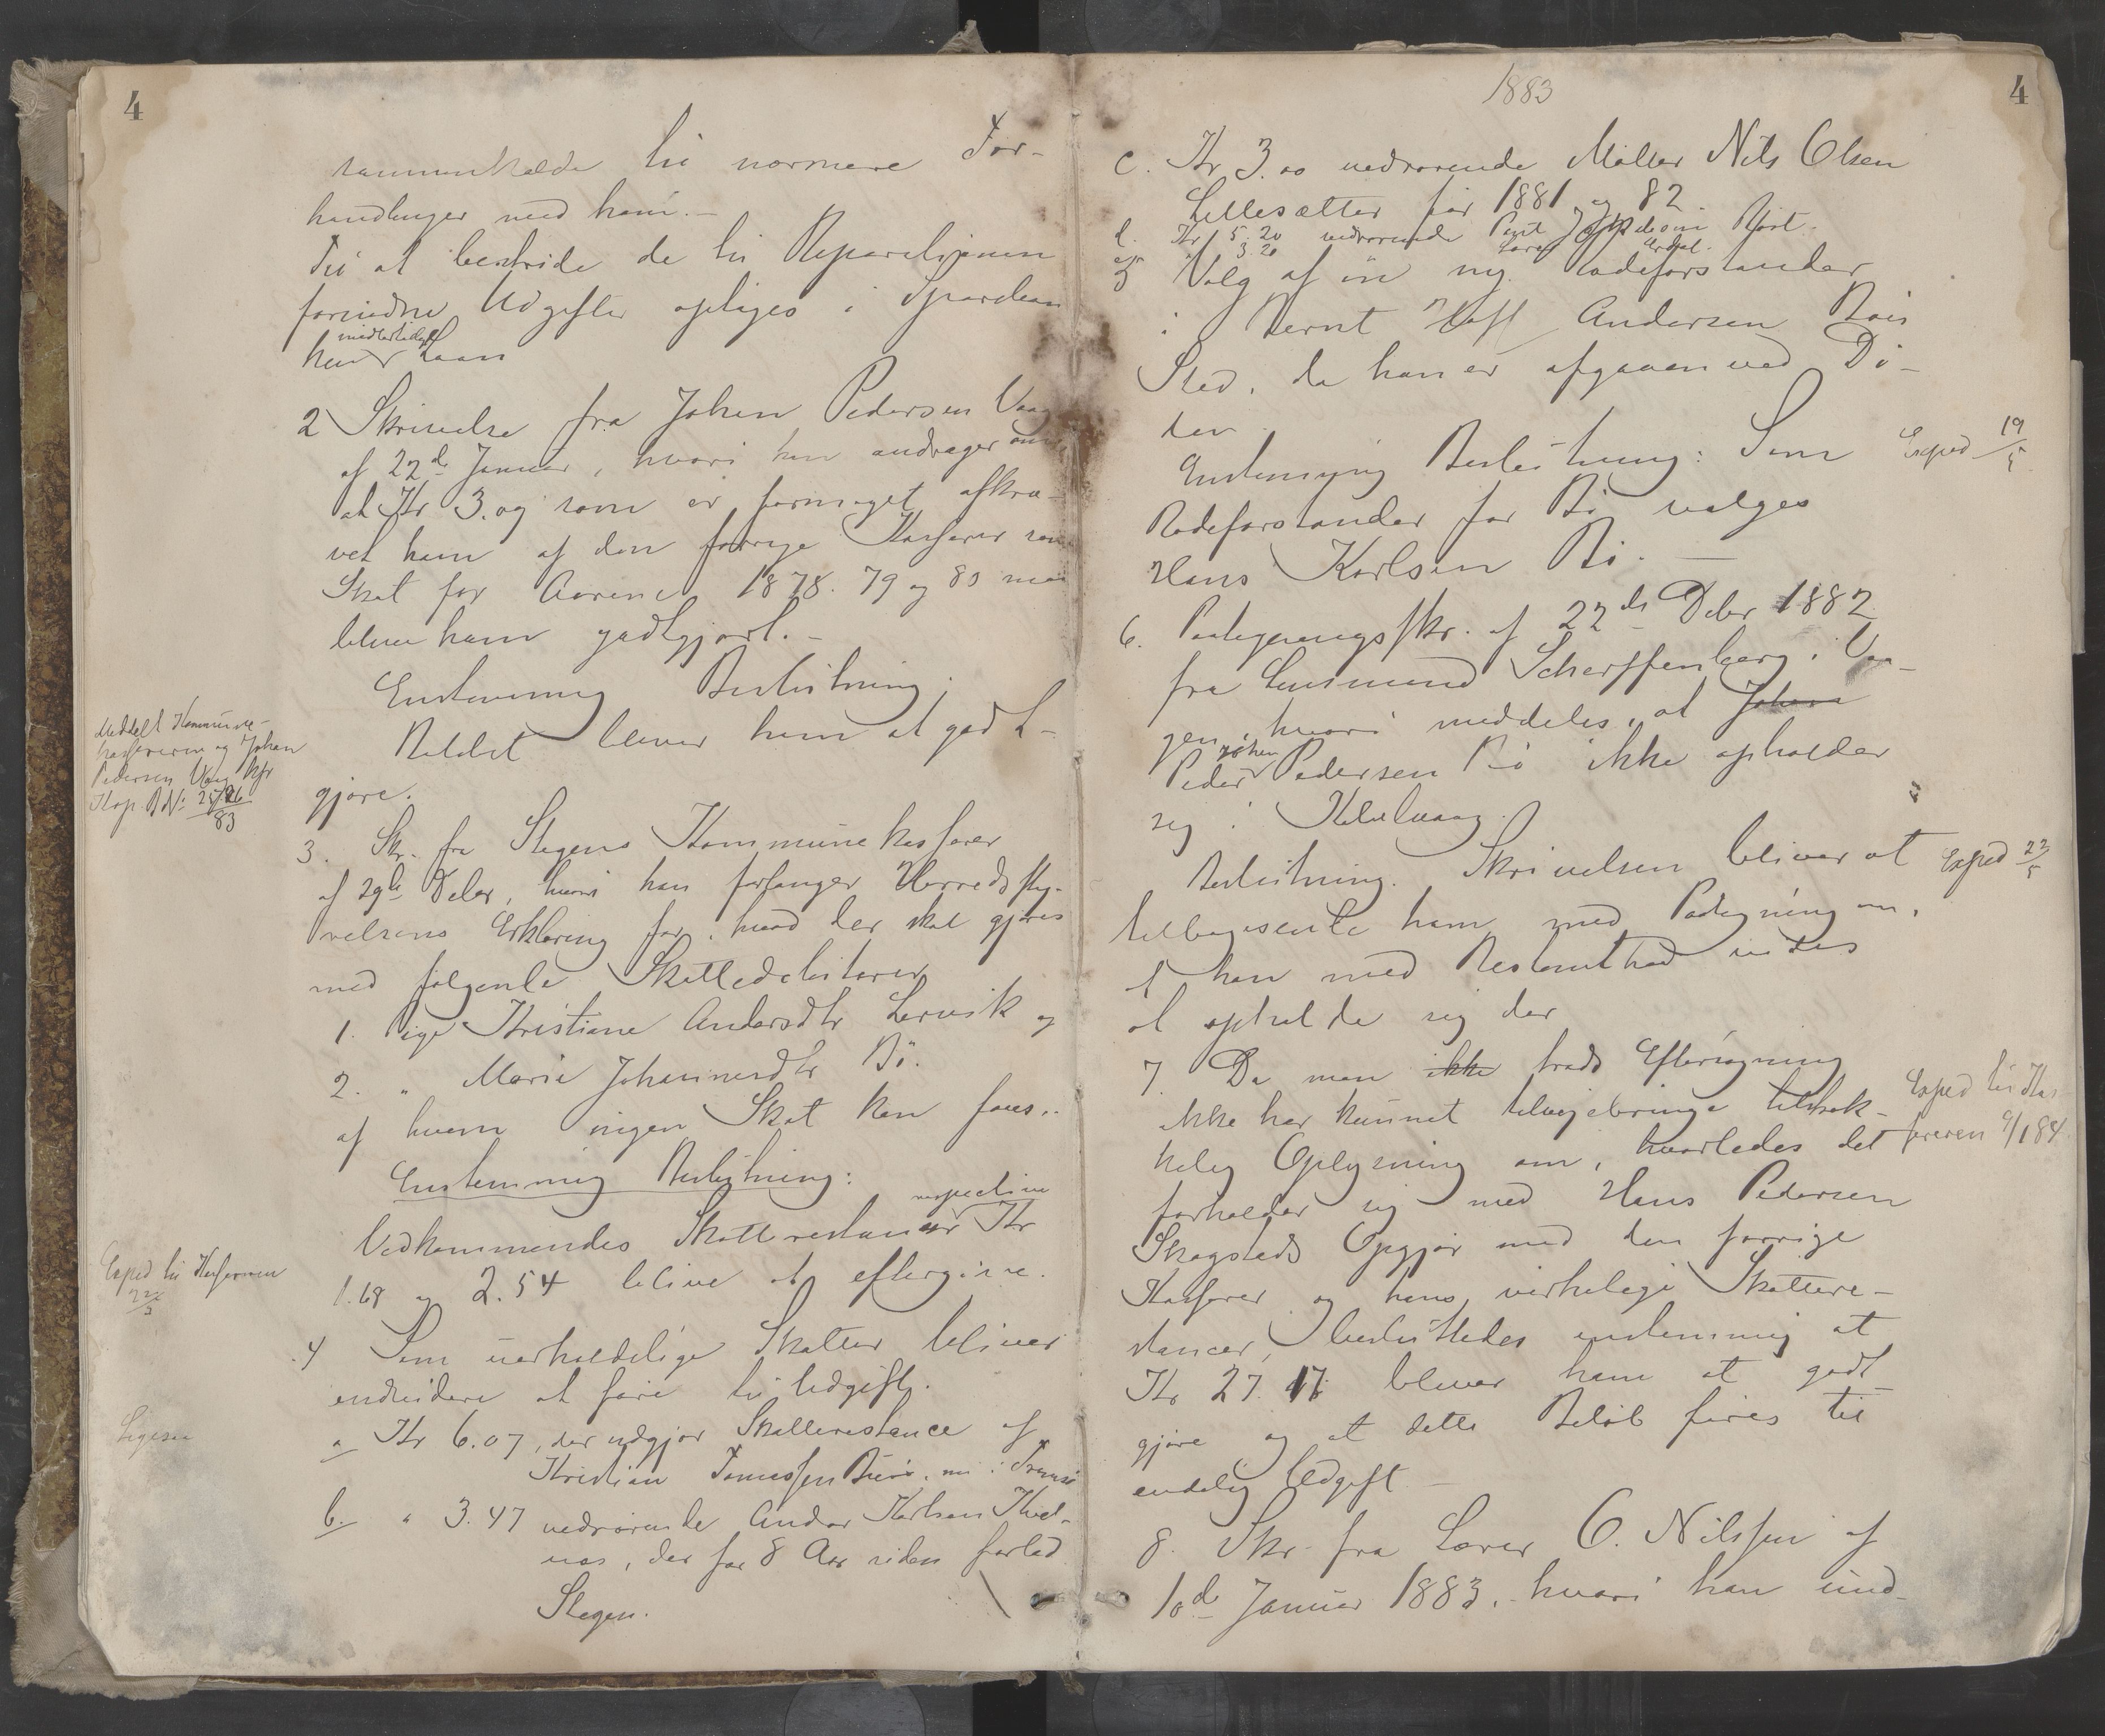 4
sammenkalde til nærmere For-
handlinger med ham.-
Til at bestride de til Reparationen
fornødne Udgifter optages i Spareban
ken midlertidigt Laan
2 Skrivelse fra Johan Pedersen Vaag
af 22de Januar, hvori han andrager om
at Kr 3.09 som er formeget afkræ-
vet ham af den forrige Kasserer som
Skat for Aarene 1878. 79 og 80 maa
blive ham godtgjort.-
Enstemmig Beslutning:
Beløbet bliver ham at godt-
gjøre.
Meddelt Kommune-
kassereren og Johan
Pedersen Vaag
Kop. B. N:
83
3. Skr. fra Stegens Kommunekasserer
af 29de Debr, hvori han forlanger Herredssty-
relsens Erklæring for, hvad der skal gjøres
med følgende Skattedebitorer
1. Pige Kristiane Andersdtr Lervik og
2. " Maria Johannesdtr Bø.
af hvem ingen Skat kan faaes..
Enstemmig Beslutning:
Vedkommendes Skatterestancer respective Kr
1.68 og 2.54 blive at eftergive.
Exped til Kassereren
22/3
4 Som uerholdelige Skatter bliver
endvidere at føre til Udgift.
Ligesaa
a Kr 6.07, der udgjør Skatterestance af
Kristian Tomassen, nu i Tromsø
b. " 3.47 vedrørende Andor Karlsen
næs, der for 8 Aar siden forlod
Stegen.
1883
4
c. Kr 3.00 vedrørende Møller Nils Olsen
Lillesætter for 1881 og 82.
d. Kr 5.20 vedrørende
3.20
5 Valg af en ny Rodeforstander
i Bernt Andersen Bøes
Sted, da han er afgaaen ved Dø-
den
Enstemmig Beslutning: Som
Exped 19/5
Rodeforstander for Bø vælges
Hans Karlsen Bø. —
6. Paategningsskr. af 22de Debr 1882
fra Lensmand Scharffenberg i Vaa-
gen, hvori meddeles, at Johan
Peder Johan Pedersen Bø ikke opholder
sig i Kabelvaag.
Beslutning. Skrivelsen bliver at
Exped 22/5
tilbagesende ham med Paategning om,
at han med Bestemthed vides
at opholde sig der
7. Da man ikke trods Eftersøgning
ikke har kunnet tilvejebringe tilstræk-
Exped til Kas
kelig Oplysning om, hvorledes det
sereren 9/1 84
forholder sig med Hans Pedersen
Skagstads Opgjør med den forrige
Kasserer og hans virkelige Skattere-
stancer, besluttedes enstemmig at
Kr 27.17 bliver ham at godt
gjøre og at dette Beløb føres til
endelig Udgift —
8. Skr. fra Lærer O. Nilssen af
10de Januar 1883, hvori han und-